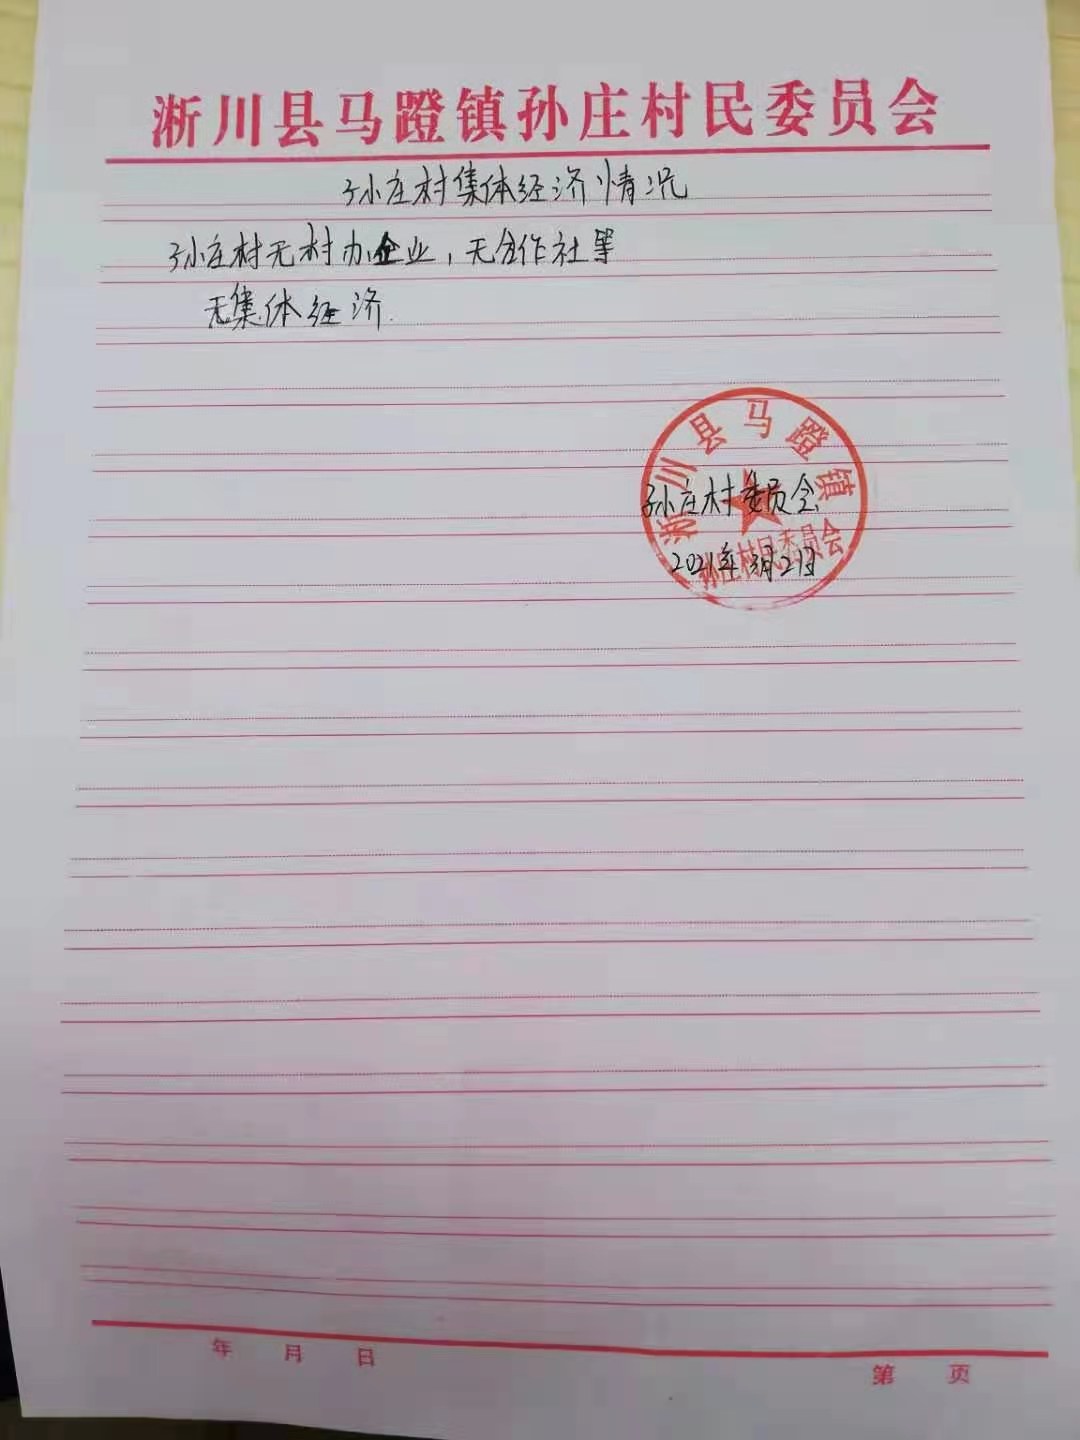 淅川县马蹬镇孙庄村民委员会
孙庄村集体经济情况
孙庄村无村办企业，无合作社等
无集体经济.
淅川县马蹬镇
孙庄村委员会
孙庄村民委员会
2021年3月2日
年 月 日
第 页